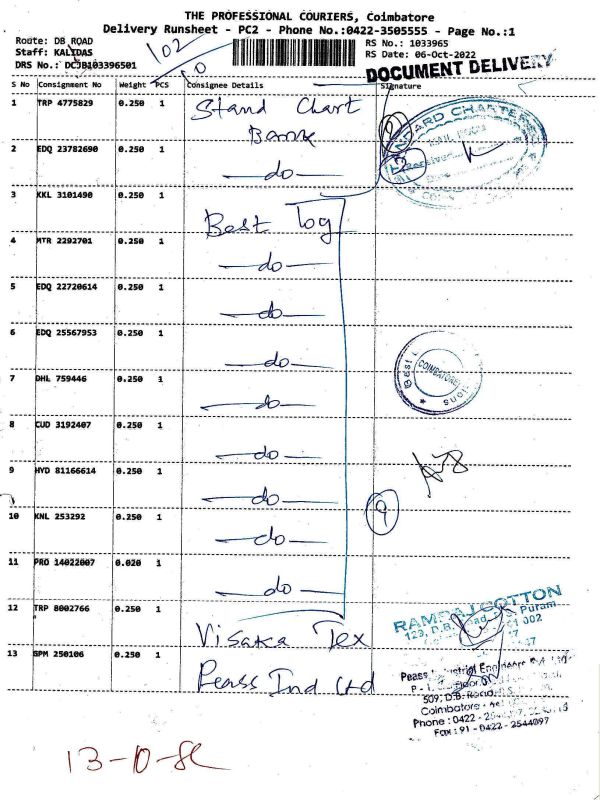 THE PROFESSIONAL COURIERS, Coimbatore
Delivery Runsheet - PC2 - Phone No.:0422-3505555 - Page No.:1
Route: DB ROAD
Staff: KALIDAS
DRS No.: DCJB103396501
102
10
RS No.: 1033965
RS Date: 06-Oct-2022
DOCUMENT DELIVERY
S No Consignment No Weight PCS Consignee Details Signature
1 TRP 4775829 0.250 1 Stand Chart Bank
STANDARD CHARTERED
2 EDQ 23782690 0.250 1 —do—
3 KKL 3101490 0.250 1 Best log
4 MTR 2292701 0.250 1 —do—
5 EDQ 22720614 0.250 1 —do—
6 EDQ 25567953 0.250 1 —do—
Best
COIMBATORE
7 DHL 759446 0.250 1 —do—
8 CUD 3192407 0.250 1 —do—
9 HYD 81166614 0.250 1 —do—
9
10 KNL 253292 0.250 1 —do—
11 PRO 14022007 0.020 1 —do—
12 TRP 8002766 0.250 1 Visaka Tex
RAMRAJ COTTON
129, D.B. Road, R.S. Puram
13 GPM 250106 0.250 1 Peass Ind Ltd
Peass Industrial Engineers
509, D.B. Road,
Coimbatore
Phone : 0422 -
Fax : 91 - 0422 - 2544097